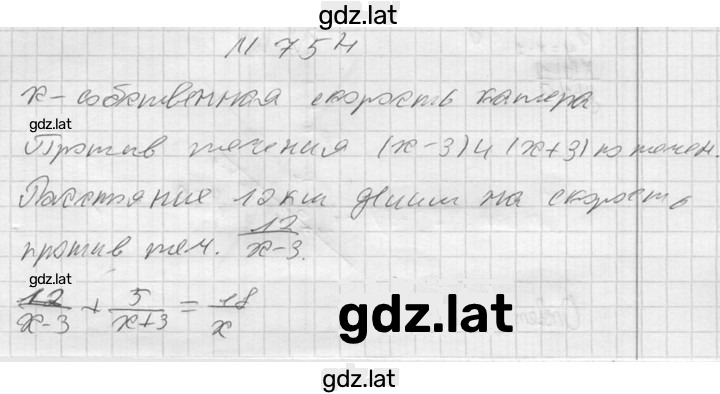 gdz.lat
N 754
x - собственная скорость катера
gdz.lat
Против течения (x-3) и (x+3) по течен.
Расстояние 12 км делим на скорость
против теч. 12/x-3.
gdz.lat
12/x-3 + 5/x+3 = 18/x
gdz.lat
gdz.lat